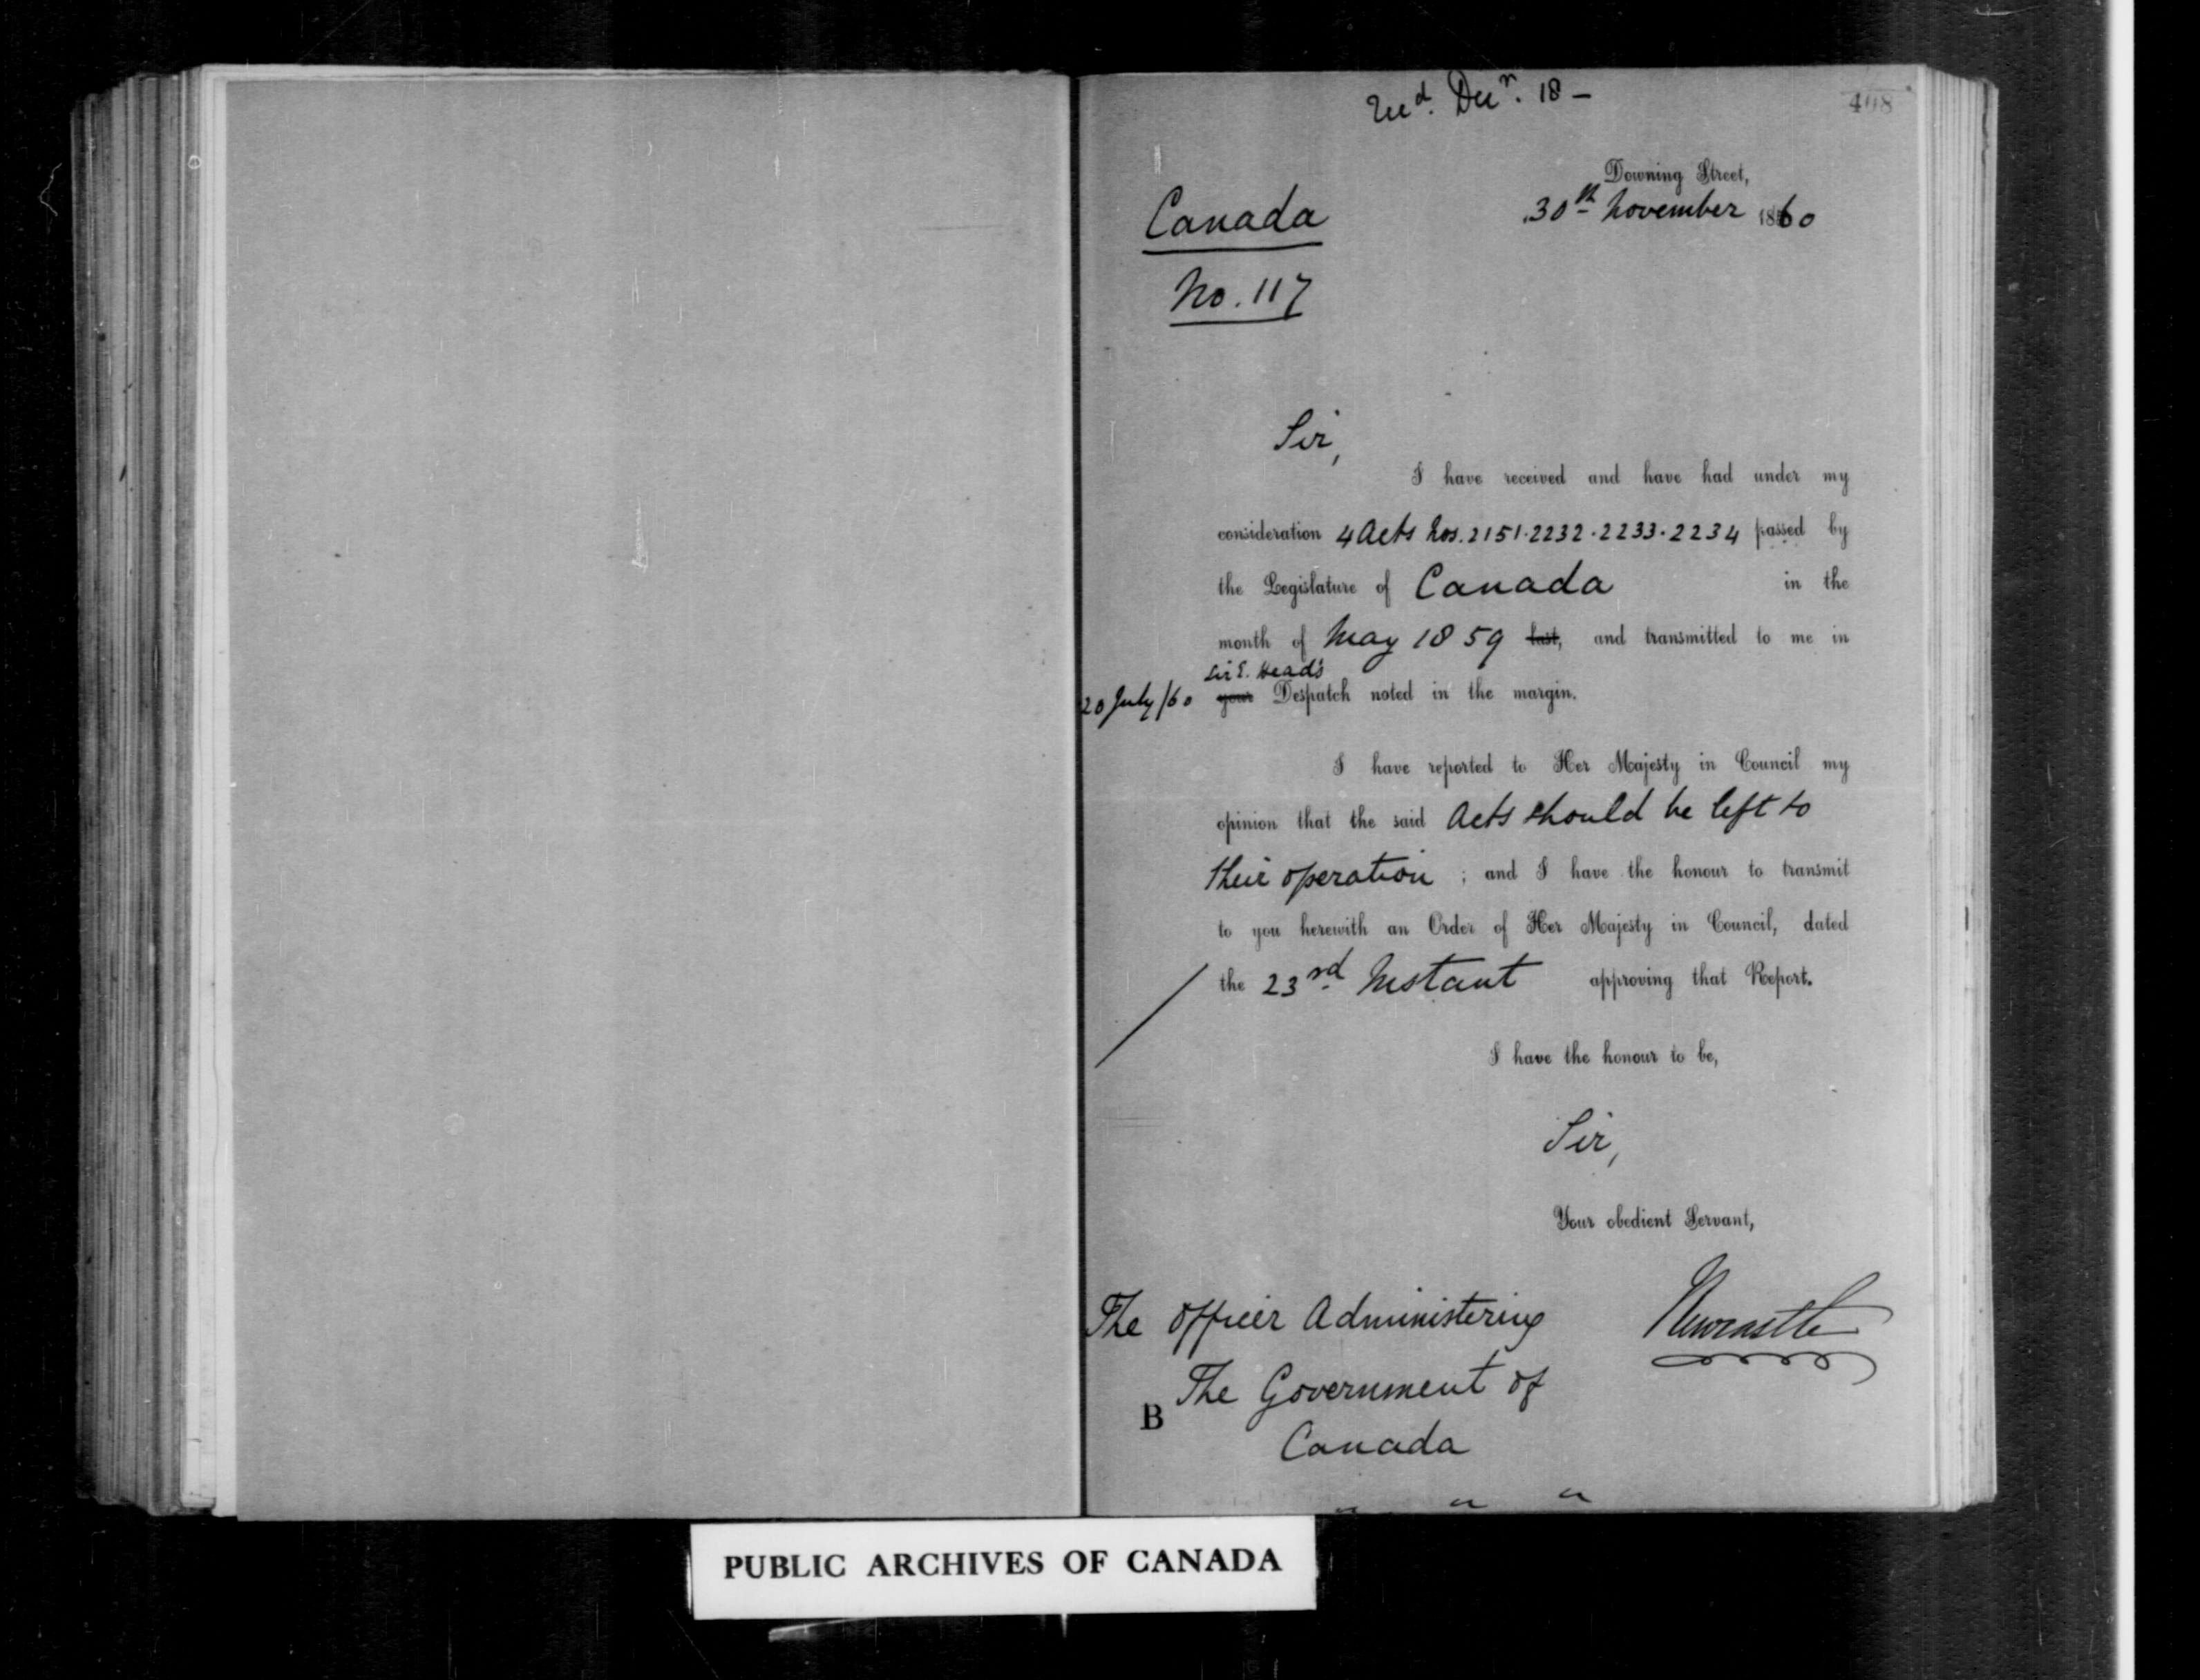 Recd. Decr. 18 –
408
Downing Street,
30th November 1860
Canada
No. 117
Sir,
I have received and have had under my
consideration 4 Acts Nos. 2151. 2232. 2233. 2234 passed by
the Legislature of Canada in the
month of May 1859 last, and transmitted to me in
Sir E. Head's
20 July/60 your Despatch noted in the margin.
I have reported to Her Majesty in Council my
opinion that the said Acts should be left to
their operation ; and I have the honour to transmit
to you herewith an Order of Her Majesty in Council, dated
the 23rd Instant approving that Report.
I have the honour to be,
Sir,
Your obedient Servant,
Newcastle
The Officer Administering
The Government of
B
Canada
PUBLIC ARCHIVES OF CANADA